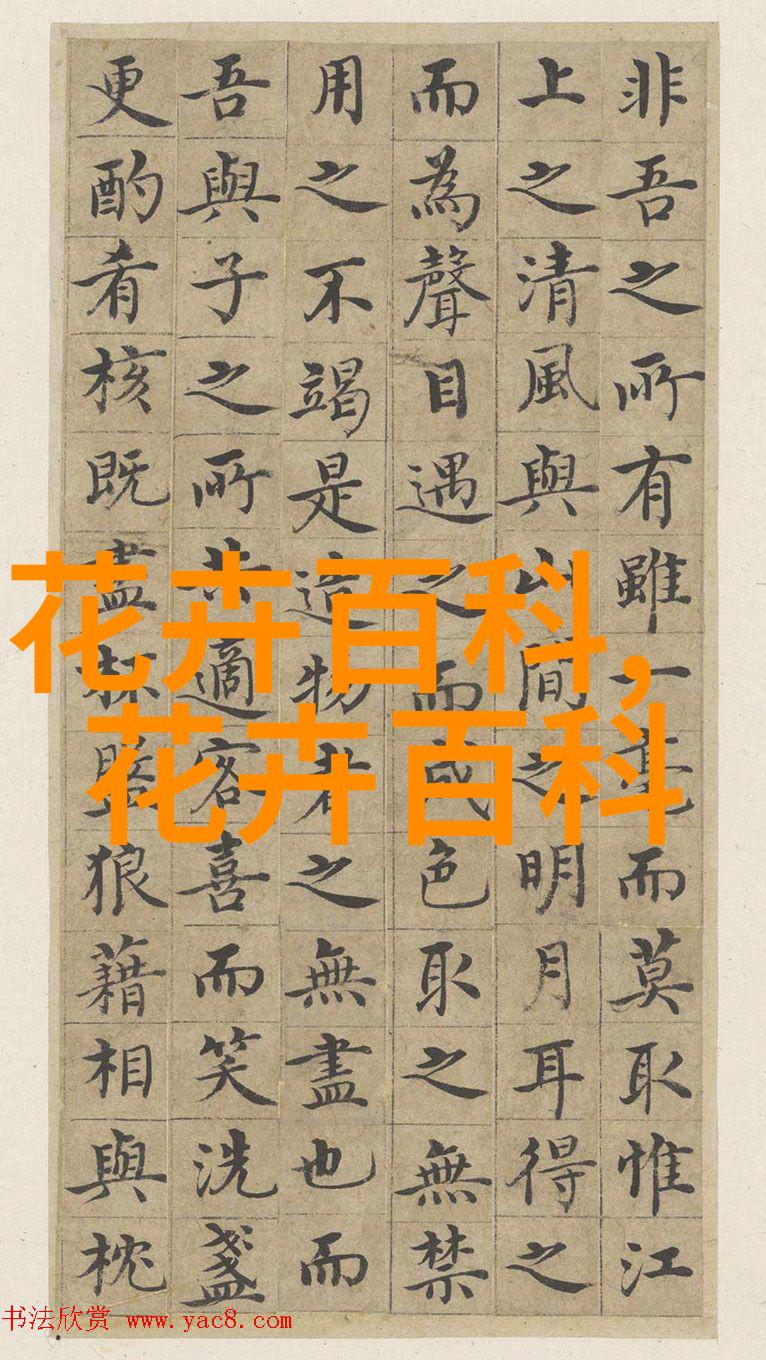 非吾之所有雖一毫而莫取惟江
上之清風與山間之明月耳得之
而為聲目遇之而成色取之無禁
用之不竭是造物者之無盡也而
吾與子之所共適客喜而笑洗盞
更酌肴核既盡杯盤狼藉相與枕
花卉百科,
花卉百科
书法欣赏 www.yac8.com